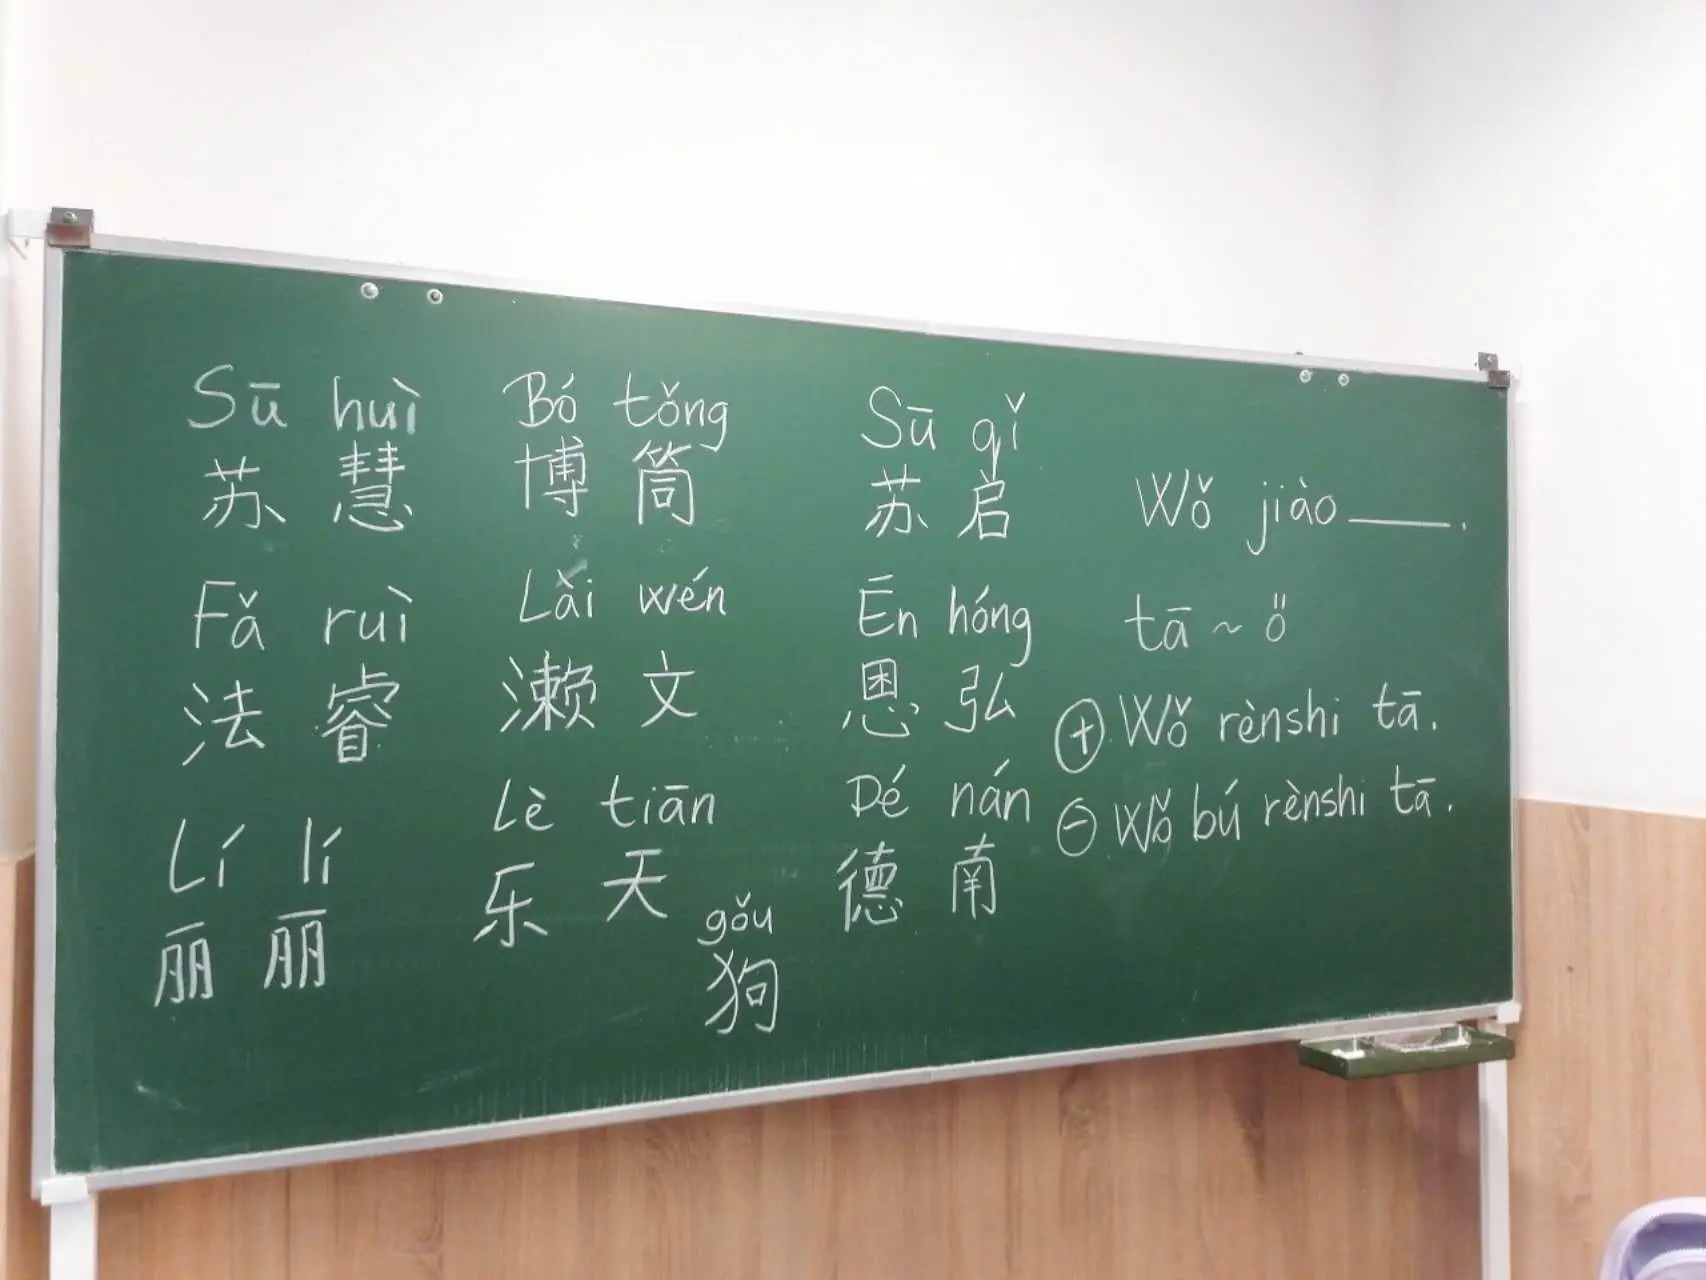 Sū huì
苏 慧
Fǎ ruì
法 睿
Lí lí
丽 丽
Bó tǒng
博 筒
Lài wén
濑 文
Lè tiān
乐 天
gǒu
狗
Sū qǐ
苏 启
Ēn hóng
恩 弘
Dé nán
德 南
Wǒ jiào ____.
tā ~ ő
⊕ Wǒ rènshi tā.
⊖ Wǒ bú rènshi tā.